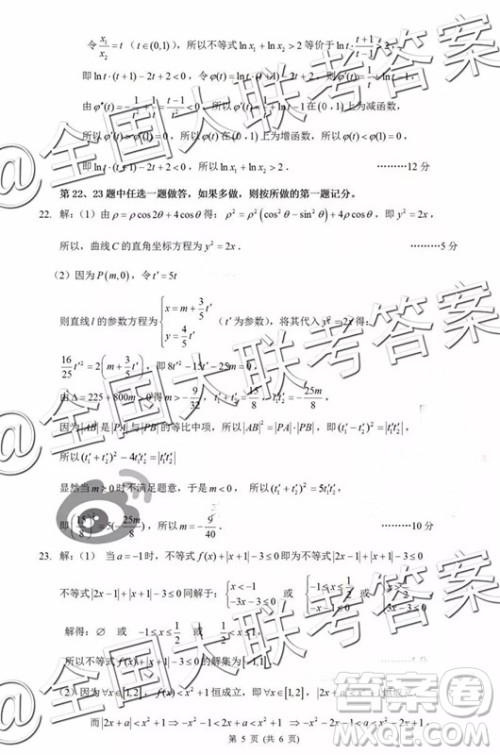 令x₁/x₂=t (t∈(0,1)),所以不等式ln x₁+ln x₂>2 等价于ln t·(t+1)/(t-1)>2,
即ln t·(t+1)-2t+2<0,
所以φ(t)在(0,1)上为增函数,所以φ(t)<φ(1)=0
即ln t·(t+1)-2t+2<0,所以ln x₁+ln x₂>2. ………12分
第22、23题中任选一题做答,如果多做,则按所做的第一题记分。
22. 解:(1)由ρ=ρcos2θ+4cosθ得:ρ²=ρ²(cos²θ-sin²θ)+4ρcosθ,
所以,曲线C的直角坐标方程为y²=2x. ………5分
(2)因为P(m,0),令t'=5t
则直线l的参数方程为{x=m+3/5t' y=4/5t' (t'为参数),将其代入y²=2x得:
16/25t'²=2(m+3/5t'),即8t'²-15t'-25m=0
由Δ=225+800m>0得m>-9/32,t₁'+t₂'=15/8,t₁'t₂'=-25m/8,
因为|AB|是|PA|与|PB|的等比中项,所以|AB|²=|PA|·|PB|,
所以(t₁'+t₂')²-4t₁'t₂'=|t₁'t₂'|
显然当m>0时不满足题意,于是m<0,所以(t₁'+t₂')²=5t₁'t₂',
即(15/8)²=5(-25m/8),所以m=-9/40. ………10分
23. 解:(1)当a=-1时,不等式f(x)+|x+1|-3≤0即为不等式|2x-1|+|x+1|-3≤0
不等式|2x-1|+|x+1|-3≤0同解于:{x<-1 -3x-3≤0 或 {-1≤x≤1/2 或
解得:∅ 或 -1≤x≤1/2 或
所以不等式f(x)+|x+1|-3≤0的解集为[-1,1].
(2)因为∀x∈[1,2],f(x)<x²+1恒成立,即∀x∈[1,2],|2x+a|<x²+1恒成立,
而|2x+a|<x²+1⇒-x²-1<2x+a<x²+1⇒-x²-2x-1<a<x²-2x+1,
第 5 页 (共 6 页)
@全国大联考答案
@全国大联考答案
@全国大联考答案
答案圈